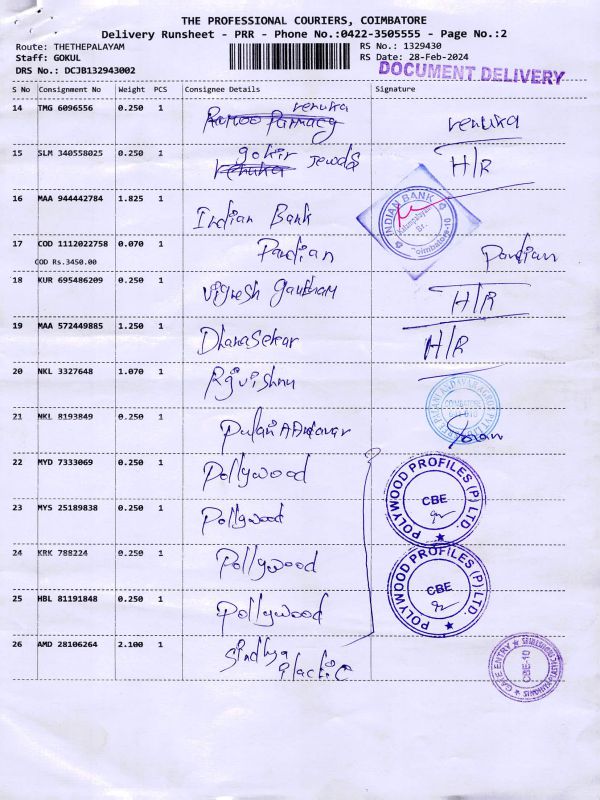 THE PROFESSIONAL COURIERS, COIMBATORE
Delivery Runsheet - PRR - Phone No.:0422-3505555 - Page No.:2
Route: THETHEPALAYAM
RS No.: 1329430
Staff: GOKUL
RS Date: 28-Feb-2024
DRS No.: DCJB132943002
DOCUMENT DELIVERY
S No Consignment No Weight PCS Consignee Details Signature
14 TMG 6096556 0.250 1 renuka renuka
15 SLM 340558025 0.250 1 Jewels H/R
16 MAA 944442784 1.825 1 Indian Bank
INDIAN BANK
Br.
Coimbatore-10
17 COD 1112022758 0.070 1 Pandian Pandian
COD Rs.3450.00
18 KUR 695486209 0.250 1 Vignesh Gautham H/R
19 MAA 572449885 1.250 1 Dhanasekar H/R
20 NKL 3327648 1.070 1 Rjvishnu
COIMBATORE
641 010
21 NKL 8193849 0.250 1
22 MYD 7333069 0.250 1 Pollywood
POLYWOOD PROFILES (P) LTD.
CBE
23 MYS 25189838 0.250 1 Pollywood
24 KRK 788224 0.250 1 Pollywood
POLYWOOD PROFILES (P) LTD.
CBE
25 HBL 81191848 0.250 1 Pollywood
26 AMD 28106264 2.100 1 Sindhya
Plastic
GATE ENTRY
CBE-10